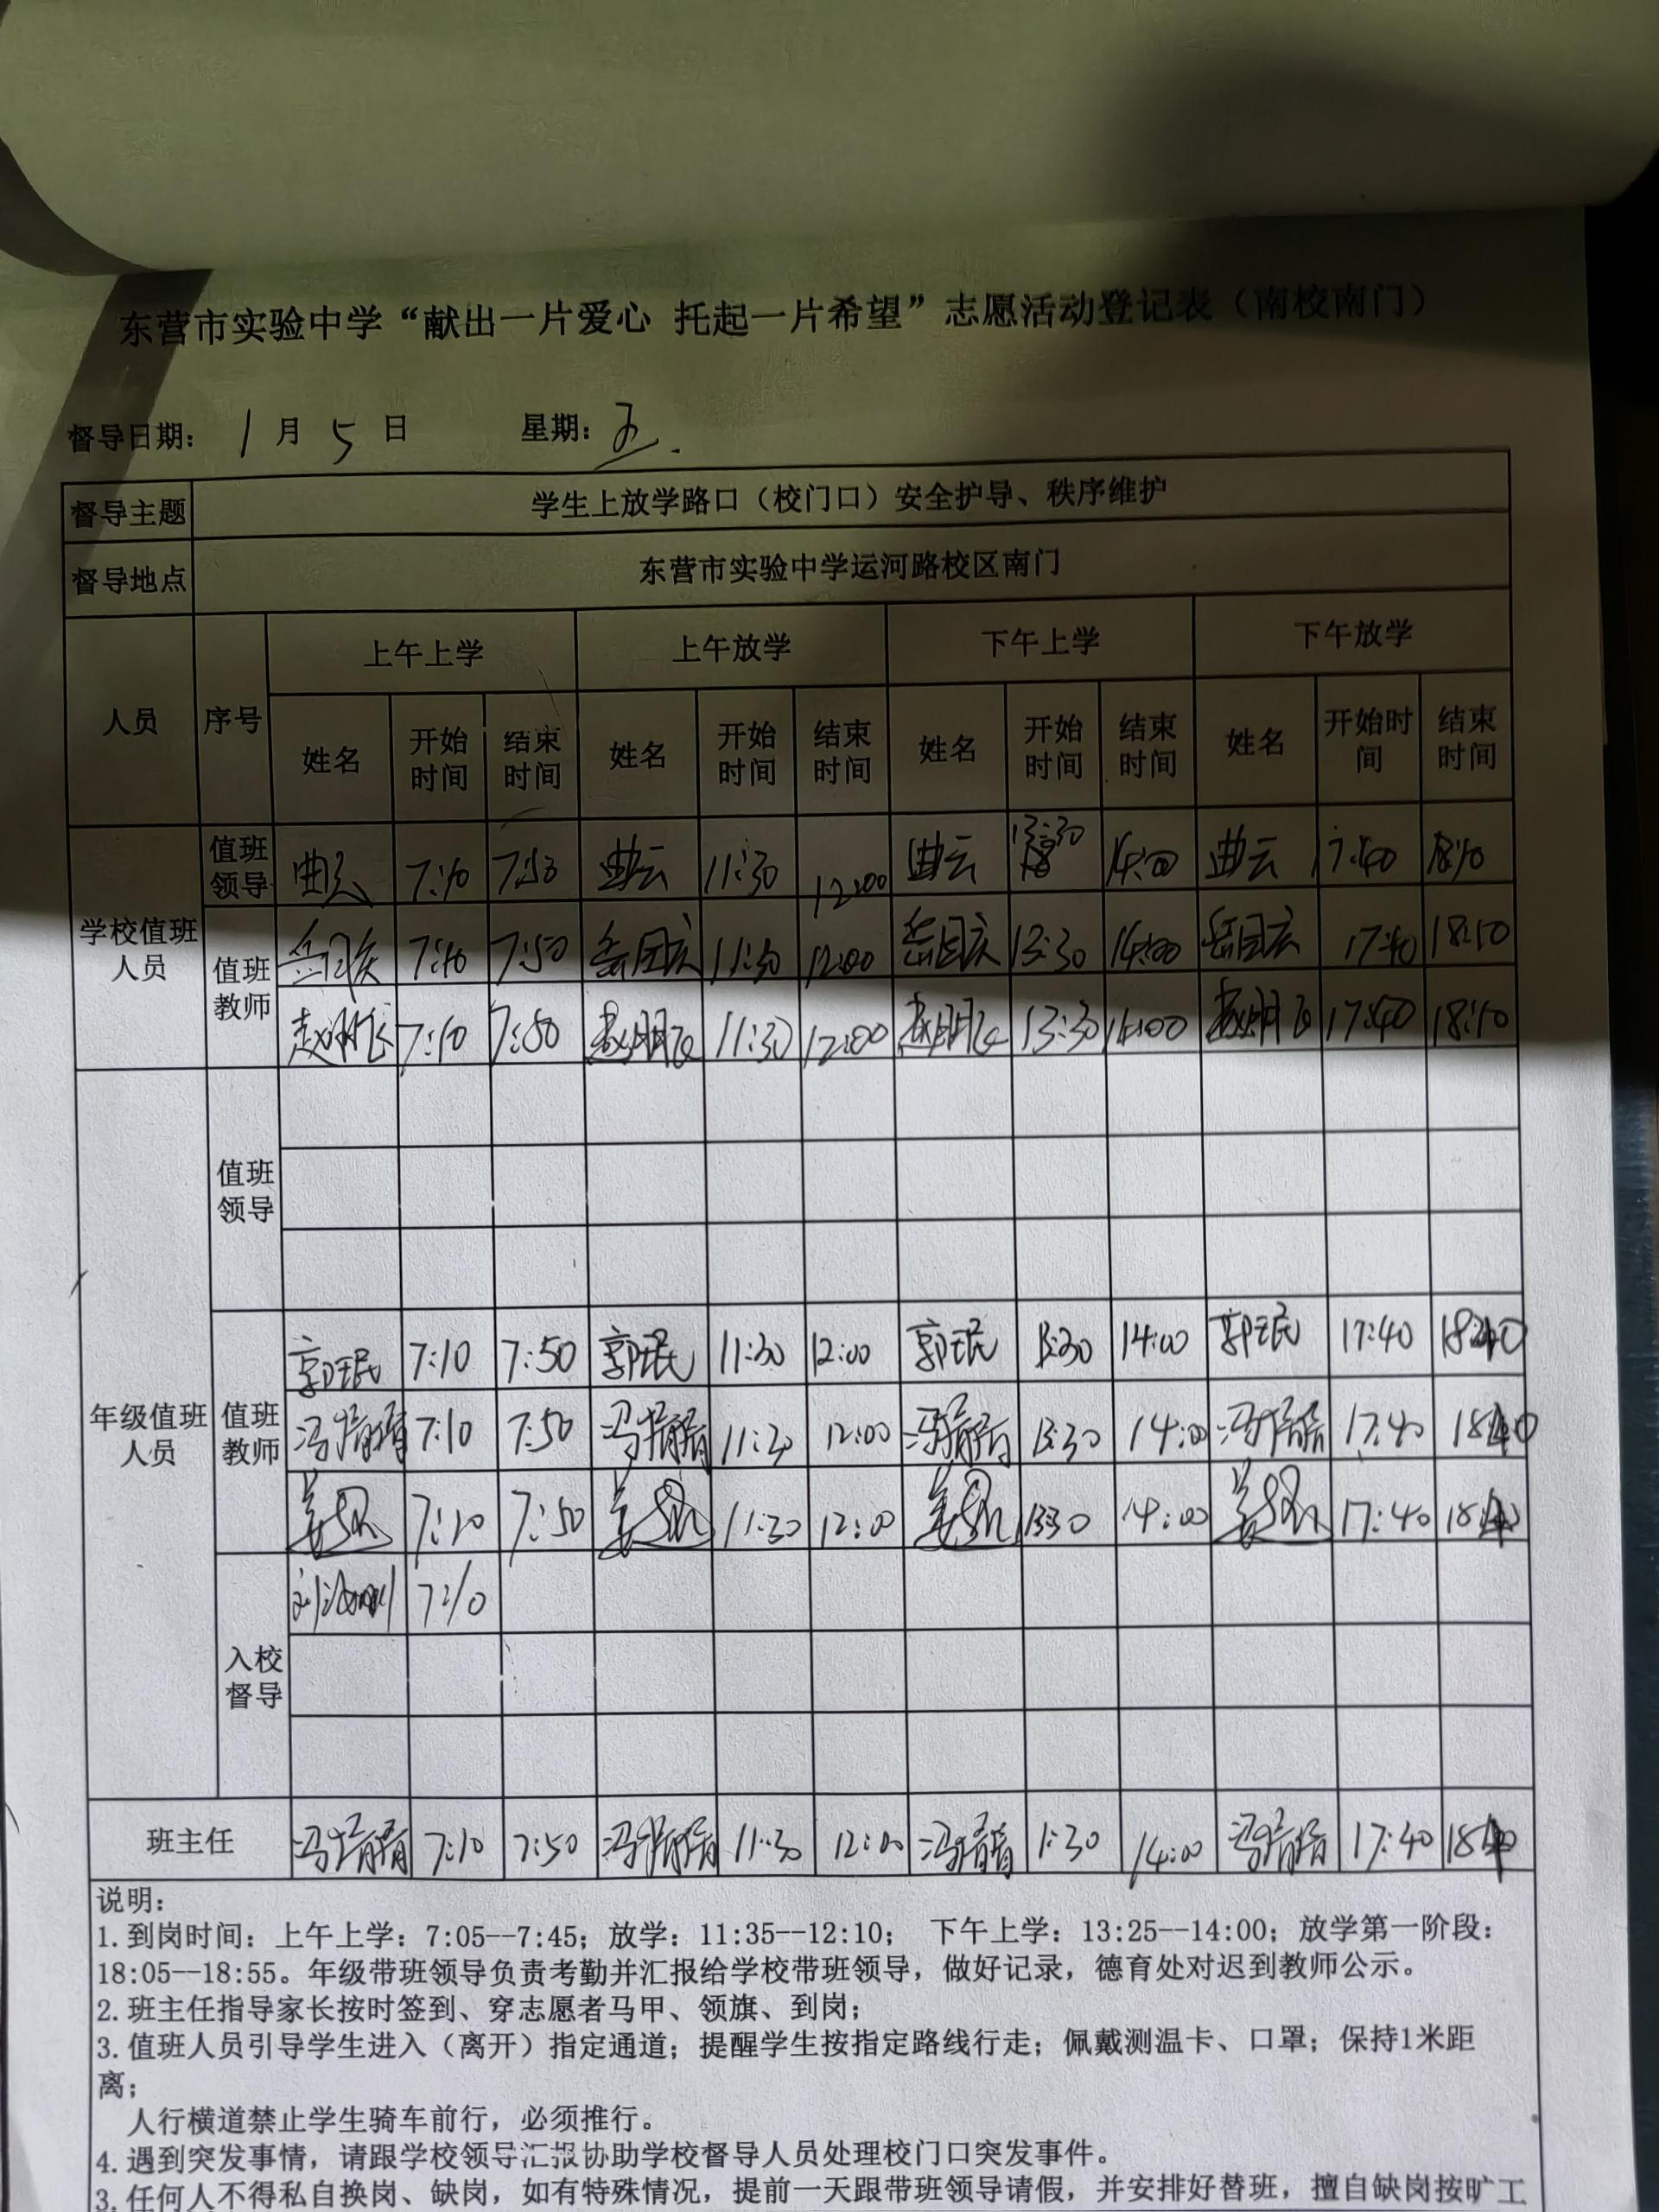 东营市实验中学“献出一片爱心 托起一片希望”志愿活动登记表（南校南门）
督导日期： 1 月 5 日 星期：五.
督导主题 学生上放学路口（校门口）安全护导、秩序维护
督导地点 东营市实验中学运河路校区南门
人员 序号 上午上学 上午放学 下午上学 下午放学
姓名 开始时间 结束时间 姓名 开始时间 结束时间 姓名 开始时间 结束时间 姓名 开始时间 结束时间
学校值班人员 值班领导 曲云 7:10 7:50 曲云 11:30 12:00 曲云 13:30 14:00 曲云 17:40 18:10
值班教师 7:10 7:50 11:30 12:00 13:30 14:00 17:40 18:10
赵明飞 7:10 7:50 赵明飞 11:30 12:00 赵明飞 13:30 14:00 赵明飞 17:40 18:10
年级值班人员 值班领导
值班教师 郭民 7:10 7:50 郭民 11:30 12:00 郭民 13:30 14:00 郭民 17:40
冯倩倩 7:10 7:50 冯倩倩 11:30 12:00 冯倩倩 13:30 14:00 冯倩倩 17:40
姜 7:10 7:50 姜 11:30 12:00 姜 13:30 14:00 姜 17:40
入校督导 7:10
班主任 冯倩倩 7:10 7:50 冯倩倩 11:30 12:00 冯倩倩 1:30 14:00 冯倩倩 17:40
说明：
1.到岗时间：上午上学：7:05--7:45；放学：11:35--12:10； 下午上学：13:25--14:00；放学第一阶段：
18:05--18:55。年级带班领导负责考勤并汇报给学校带班领导，做好记录，德育处对迟到教师公示。
2.班主任指导家长按时签到、穿志愿者马甲、领旗、到岗；
3.值班人员引导学生进入（离开）指定通道；提醒学生按指定路线行走；佩戴测温卡、口罩；保持1米距
离；
人行横道禁止学生骑车前行，必须推行。
4.遇到突发事情，请跟学校领导汇报协助学校督导人员处理校门口突发事件。
3.任何人不得私自换岗、缺岗，如有特殊情况，提前一天跟带班领导请假，并安排好替班，擅自缺岗按旷工